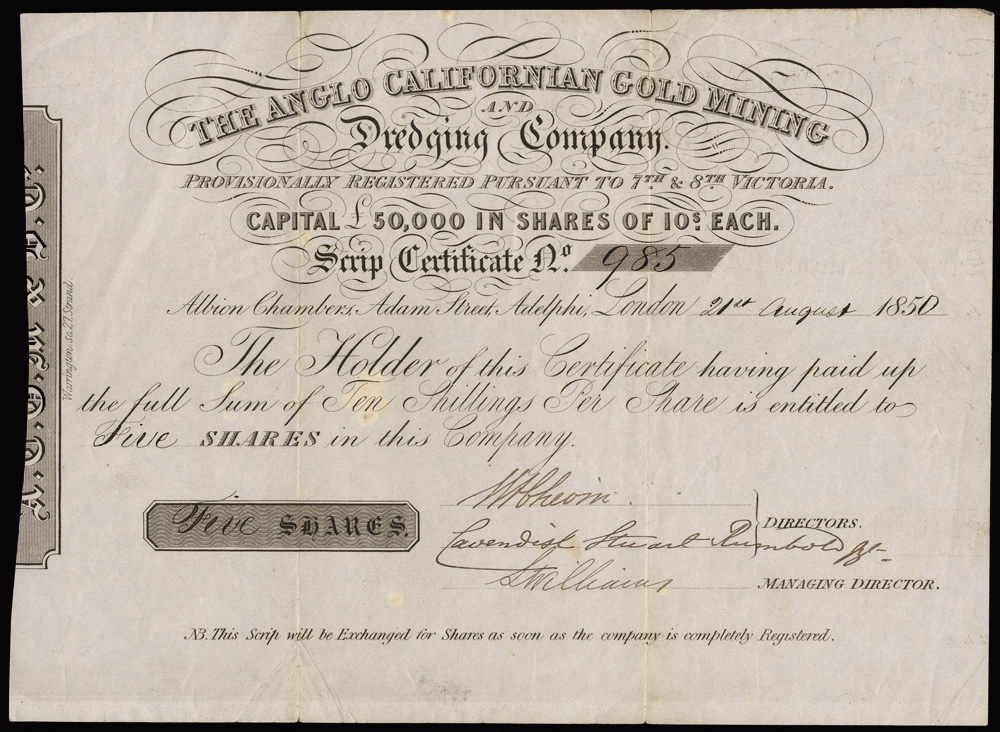 THE ANGLO CALIFORNIAN GOLD MINING
AND
Dredging Company.
PROVISIONALLY REGISTERED PURSUANT TO 7TH & 8TH VICTORIA.
CAPITAL £50,000 IN SHARES OF 10S EACH.
Scrip Certificate No. 985
Albion Chambers, Adam Street, Adelphi, London 21st August 1850
The Holder of this Certificate having paid up
the full Sum of Ten Shillings Per Share is entitled to
Five SHARES in this Company.
Five SHARES.
DIRECTORS.
Cavendish Stuart Rumbold
Williams
MANAGING DIRECTOR.
NB. This Scrip will be Exchanged for Shares as soon as the company is completely Registered.
Warrington sc. 27, Strand.